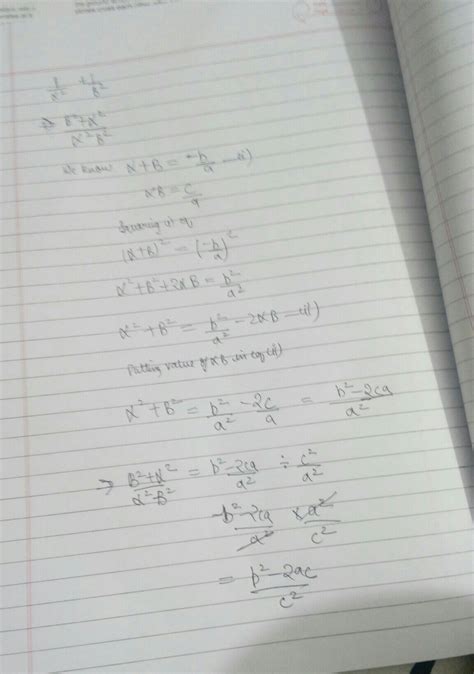 1/α² + 1/B²
⇒ B²+α² / α²B²
We know α+B = -b/a —(i)
αB = c/a
Squaring it eq
(α+B)² = (-b/a)²
α²+B²+2αB = b²/a²
α²+B² = b²/a² - 2αB —(ii)
Putting value of αB in eq(ii)
α²+B² = b²/a² - 2c/a = b²-2ca / a²
⇒ B²+α² / α²B² = b²-2ca / a² ÷ c²/a²
b²-2ca / a² × a²/c²
= b²-2ac / c²